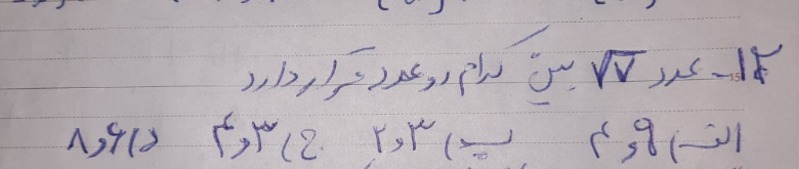 ۱۲- عدد √۷ بین کدام دو عدد قرار دارد
الف) ۹ و ۴ ب) ۳ و ۲ ج) ۳ و ۴ د) ۶ و ۸